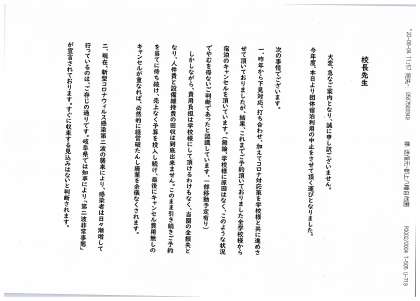 校長先生
大変、急なご案内となり、誠に申し訳ございません。
今年度、本日より団体宿泊利用の中止をさせて頂く運びとなりました。
次の事情でございます。
一、昨年から下見対応、打ち合わせ、加えてコロナ対応策を学校様と共に進めさ
せて頂いておりましたが、結果、これまでご予約頂いておりました全学校様から
宿泊のキャンセルを頂いています。(無論、学校様に原因はなく、このような状況
でやむを得ないご判断であったと認識しています。一部移動予定有り)
しかしながら、費用負担は学校様にして頂けるわけもなく、当園の全損失と
なり、人件費と設備維持費の回収は到底出来ません。このまま引き続きご予約
を首てに待ち続け、売上なく予算を投入し続け、最後にキャンセル費用無しの
キャンセルが重なれば、必然的に経営破たんし廃業を余儀なくされます。
二、現在、新型コロナウィルス感染第二波の襲来により、感染者は日々激増して
行っているのは、ご存じの通りです。岐阜県では知事により、「第二波非常事態」
が宣言されております。すぐに収束する見込みはないと判断されます。